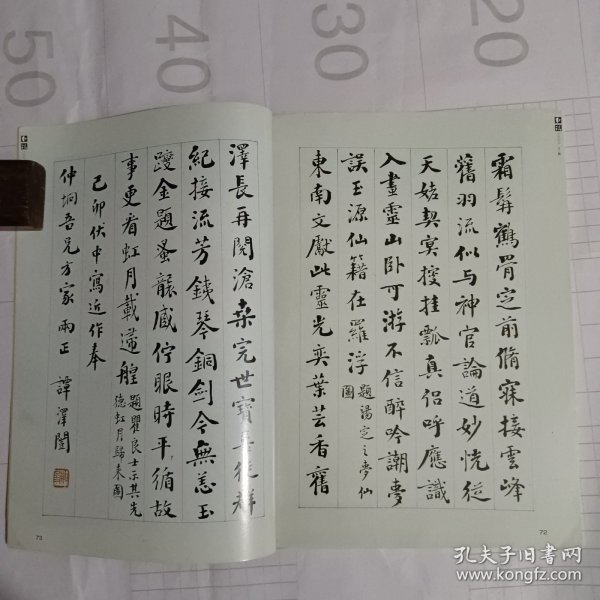 霜髯鶴骨定前脩寐接雲峰
舊羽流似与神官論道妙恍從
天姥契冥搜挂瓢真侶呼應識
入畫靈山卧可游不信醉吟謿夢
誤玉源仙籍在羅浮
題湯定之夢仙
圖
東南文獻此靈光奕葉芸香舊
72
澤長再閱滄桒完世寶從群
紀接流芳銕琴銅劍今無恙玉
躞金題蚤襲臧佇眼時平循故
事更看虹月載滿艎
題瞿良士示其先
德虹月歸來圖
己卯伏中寫近作奉
仲坰吾兄方家 兩正 譚澤闓
73
50
40
30
20
孔夫子旧书网
www.kongfz.com